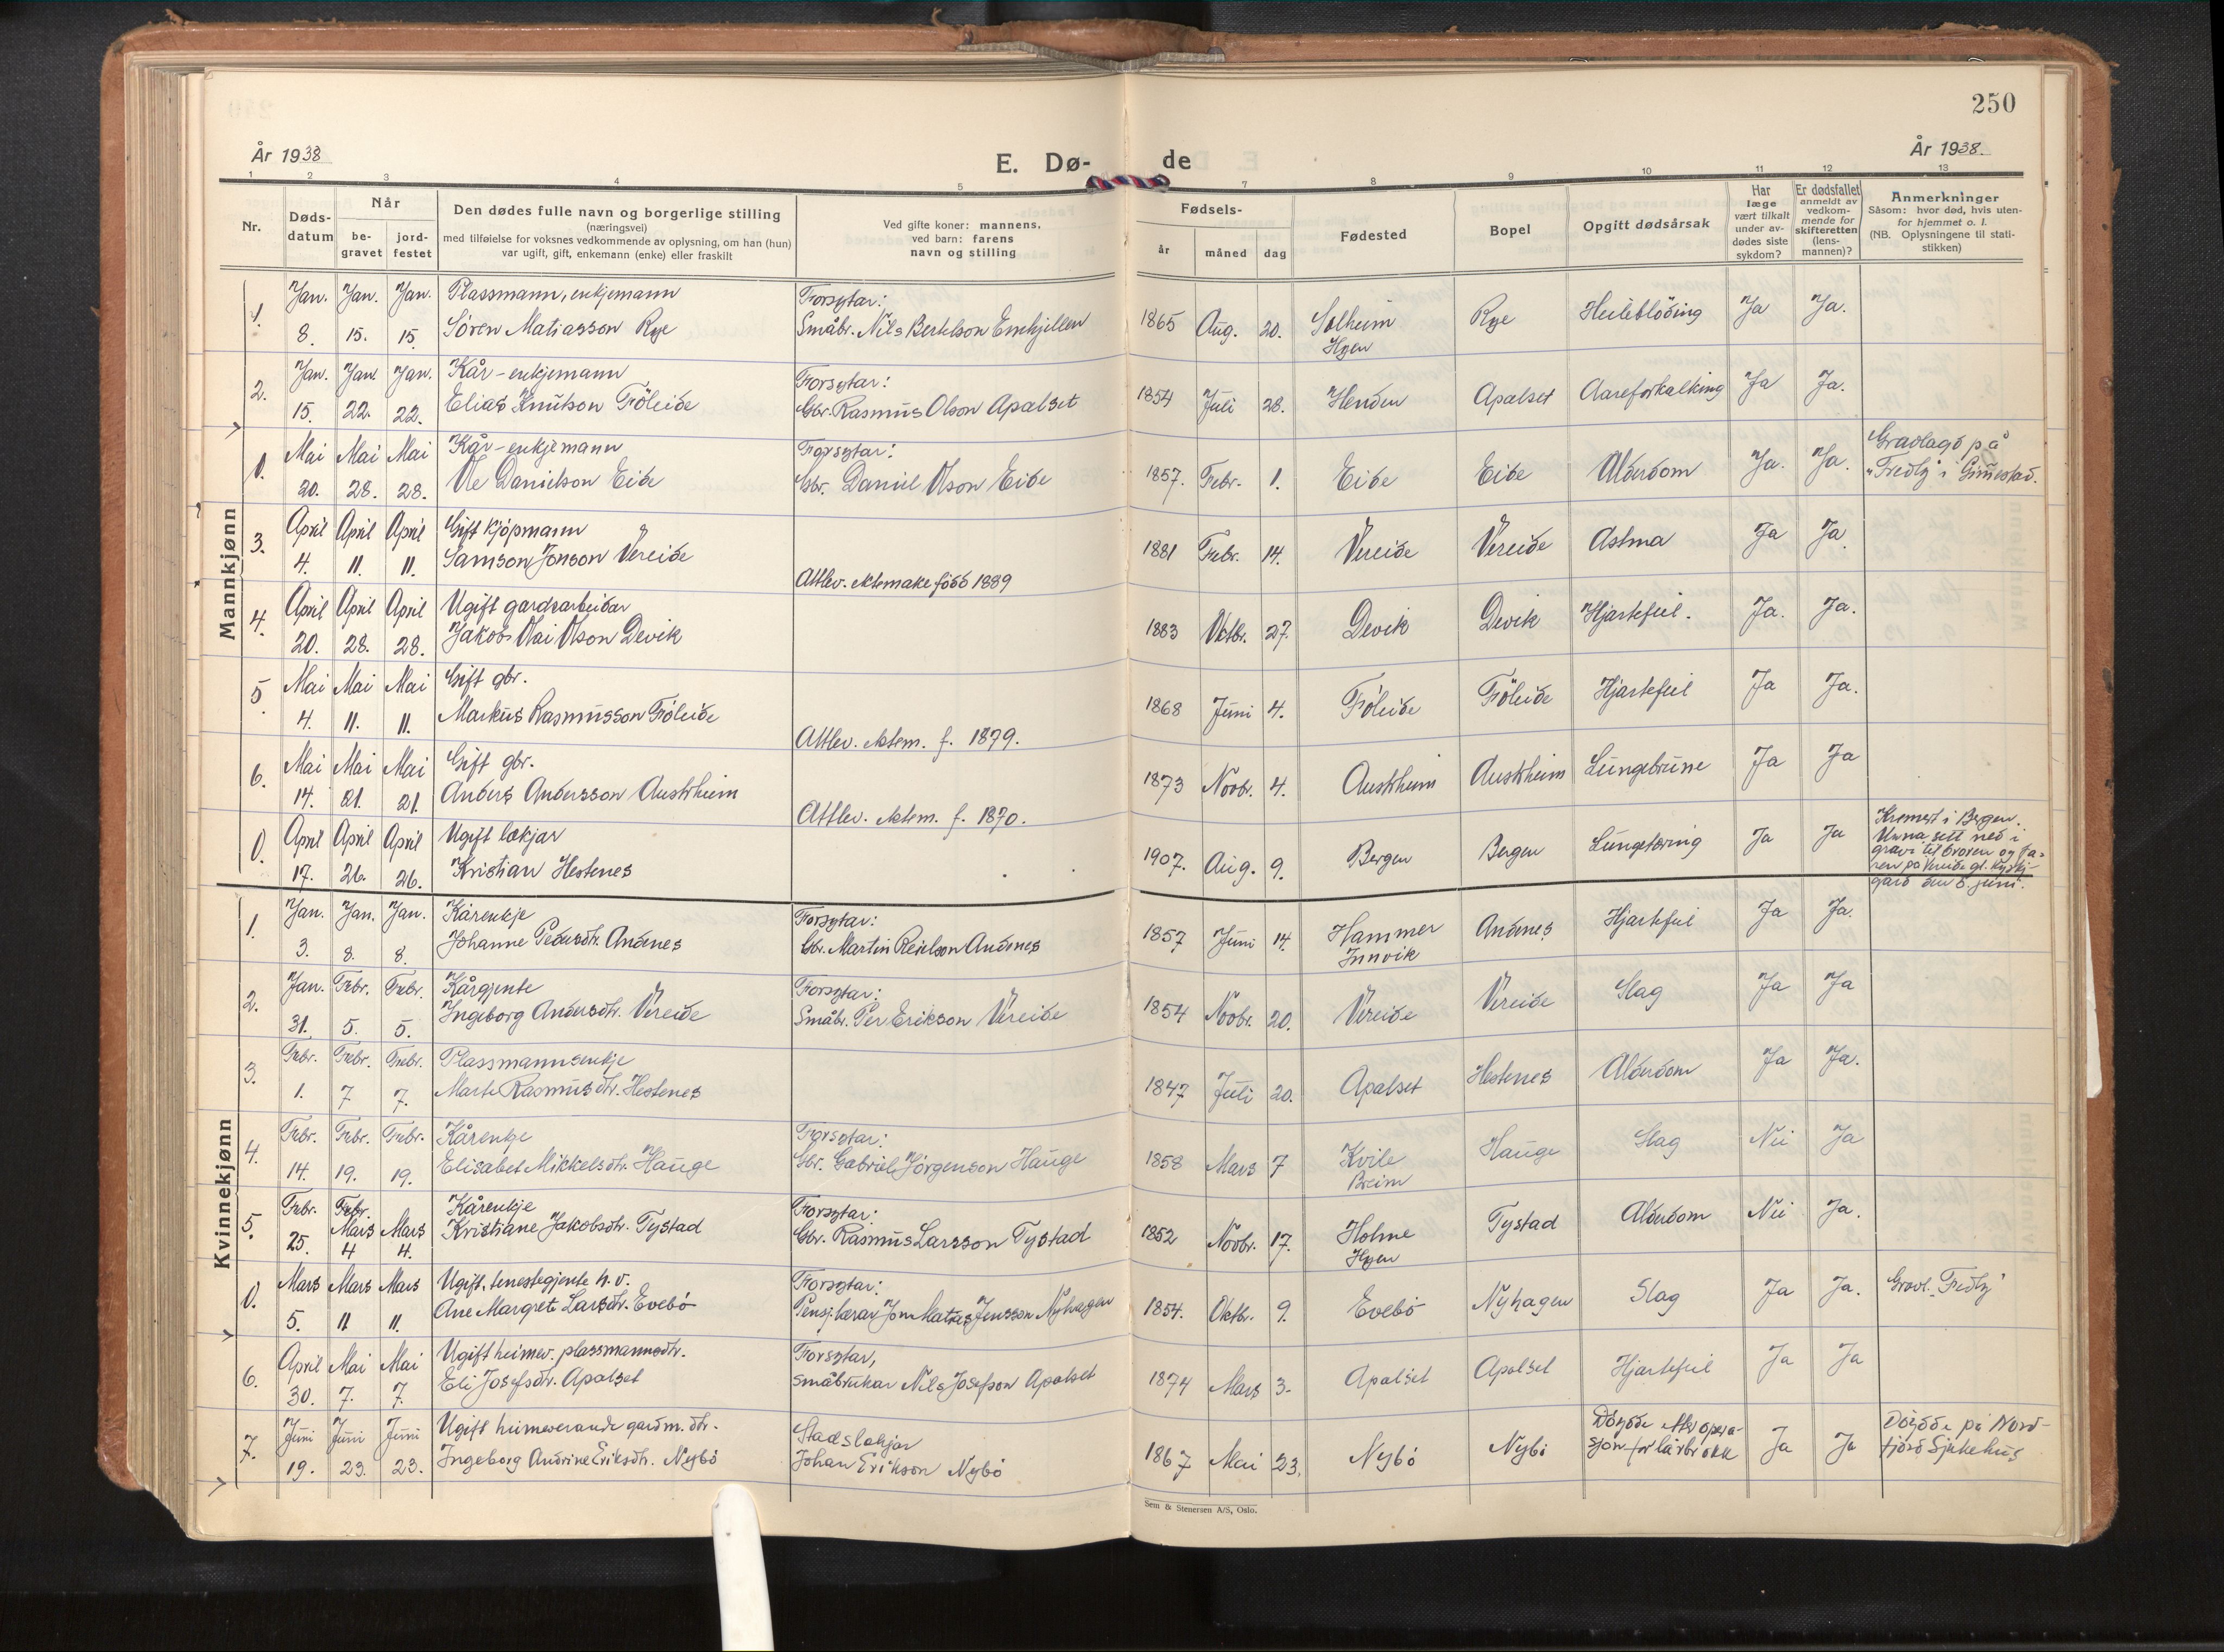 250
År 1938
E. Dø-
de
År 1938.
1 2 3 4 5 7 8 9 10 11 12 13
Nr.
Døds-
datum
Når
be-
gravet
jord-
festet
Den dødes fulle navn og borgerlige stilling
(næringsvei)
med tilføielse for voksnes vedkommende av oplysning, om han (hun)
var ugift, gift, enkemann (enke) eller fraskilt
Ved gifte koner: mannens,
ved barn: farens
navn og stilling
Fødsels-
år
måned
dag
Fødested
Bopel
Opgitt dødsårsak
Har
læge
vært tilkalt
under av-
dødes siste
sykdom?
Er dødsfallet
anmeldt av
vedkom-
mende for
skifteretten
(lens-
mannen)?
Anmerkninger
Såsom: hvor død, hvis uten-
for hjemmet o. l.
(NB. Oplysningene til stati-
stikken)
Mannkjønn
1. Jan. Jan. Jan. Plassmann, enkjemann Forsytar:
8. 15. 15. Søren Matiasson Rye Småbr. Nils Bertelson Emhjellen 1865 Aug. 20. Solheim Rye Heileblöding Ja Ja.
Hyen
2. Jan. Jan. Jan. Kår-enkjemann Forsytar:
15. 22. 22. Elias Knutson Föleide Gbr. Rasmus Olson Apalset 1854 Juli 28. Henden Apalset Aareforkalking Ja Ja.
0. Mai Mai Mai Kår-enkjemann Forsytar:
20. 28. 28. Ole Danielson Eide Gbr. Daniel Olson Eide 1857. Febr. 1. Eide Eide Alderdom Ja. Ja. Gravlagd på
"Fredly" i Gimmestad.
3. April April April Gift kjöpmann
4. 11. 11. Samson Jonson Vereide 1881 Febr. 14. Vereide Vereide Astma Ja Ja.
Attlev. ektemake född 1889
4. April April April Ugift gardsarbeidar
20. 28. 28. Jakob Olai Olson Devik 1883 Oktbr. 27. Devik Devik Hjartefeil. Ja. Ja.
5. Mai Mai Mai Gift gbr.
4. 11. 11. Markus Rasmusson Föleide 1868 Juni 4. Föleide Föleide Hjartefeil Ja Ja.
Attlev. ektem. f. 1879.
6. Mai Mai Mai Gift gbr.
14. 21. 21. Anders Andersson Austrheim 1873 Novbr. 4. Austrheim Austrheim Lungebrune Ja Ja
Attlev. ektem. f. 1870.
0. April April April Ugift lækjar
17. 26. 26. Kristian Hestenes 1907. Aug. 9. Bergen Bergen Lungetæring Ja Ja
Kremert i Bergen.
Urna sett ned i
grav til broren og fa-
ren på Vereide gl. kyrkje-
gard den 5. juni.
Kvinnekjønn
1. Jan. Jan. Jan. Kårenkje Forsytar:
3. 8. 8. Johanne Pedersdtr. Andenes Gbr. Martin Reielson Andenes 1857 Juni 14. Hammer Andenes Hjartefeil Ja Ja.
Innvik
2. Jan. Febr. Febr. Kårgjente Forsytar:
31. 5. 5. Ingeborg Andersdtr. Vereide Småbr. Per Erikson Vereide 1854 Novbr. 20. Vereide Vereide Slag Ja Ja
3. Febr. Febr. Febr. Plassmannsenkje
1. 7 7. Marte Rasmusdtr. Hestenes 1847 Juli 20. Apalset Hestenes Alderdom Ja Ja.
4. Febr. Febr. Febr. Kårenkje Forsytar:
14. 19. 19. Elisabet Mikkelsdtr. Hauge Gbr. Gabriel Jörgenson Hauge 1858 Mars 7 Kvile Hauge Slag Nei Ja
Breim
5. Febr. Febr. Kårenkje Forsytar:
Mars Mars
25. 4 4. Kristiane Jakobsdtr. Tystad Gbr. Rasmus Larsson Tystad 1852 Novbr. 17. Holme Tystad Alderdom Nei Ja.
Hyen
0. Mars Mars Mars Ugift, tenestegjente h. v. Forsytar:
5. 11 11. Ane Margrete Larsdtr. Evebö Pensj. lærar Jon Matias Jensson Nyhagen 1854. Oktbr. 9. Evebö Nyhagen Slag Ja Ja. Gravl. "Fredly"
6. April Mai Mai Ugift heimev. plassmannsdtr. Forsytar,
30. 7. 7. Eli Josefsdtr. Apalset småbrukar Nils Josefson Apalset 1874 Mars 3. Apalset Apalset Hjartefeil Ja Ja
7. Juni Juni Juni Ugift heimeverande gardm. dtr. Stadslækjar
19. 23. 23. Ingeborg Andrine Eriksdtr. Nybö Johan Erikson Nybö 1867 Mai 23. Nybö Nybö Döydde etter opera-
sjon for lårbrokk Ja Ja Döydde på Nord-
fjord Sjukehus
Sem & Stenersen A/S, Oslo.